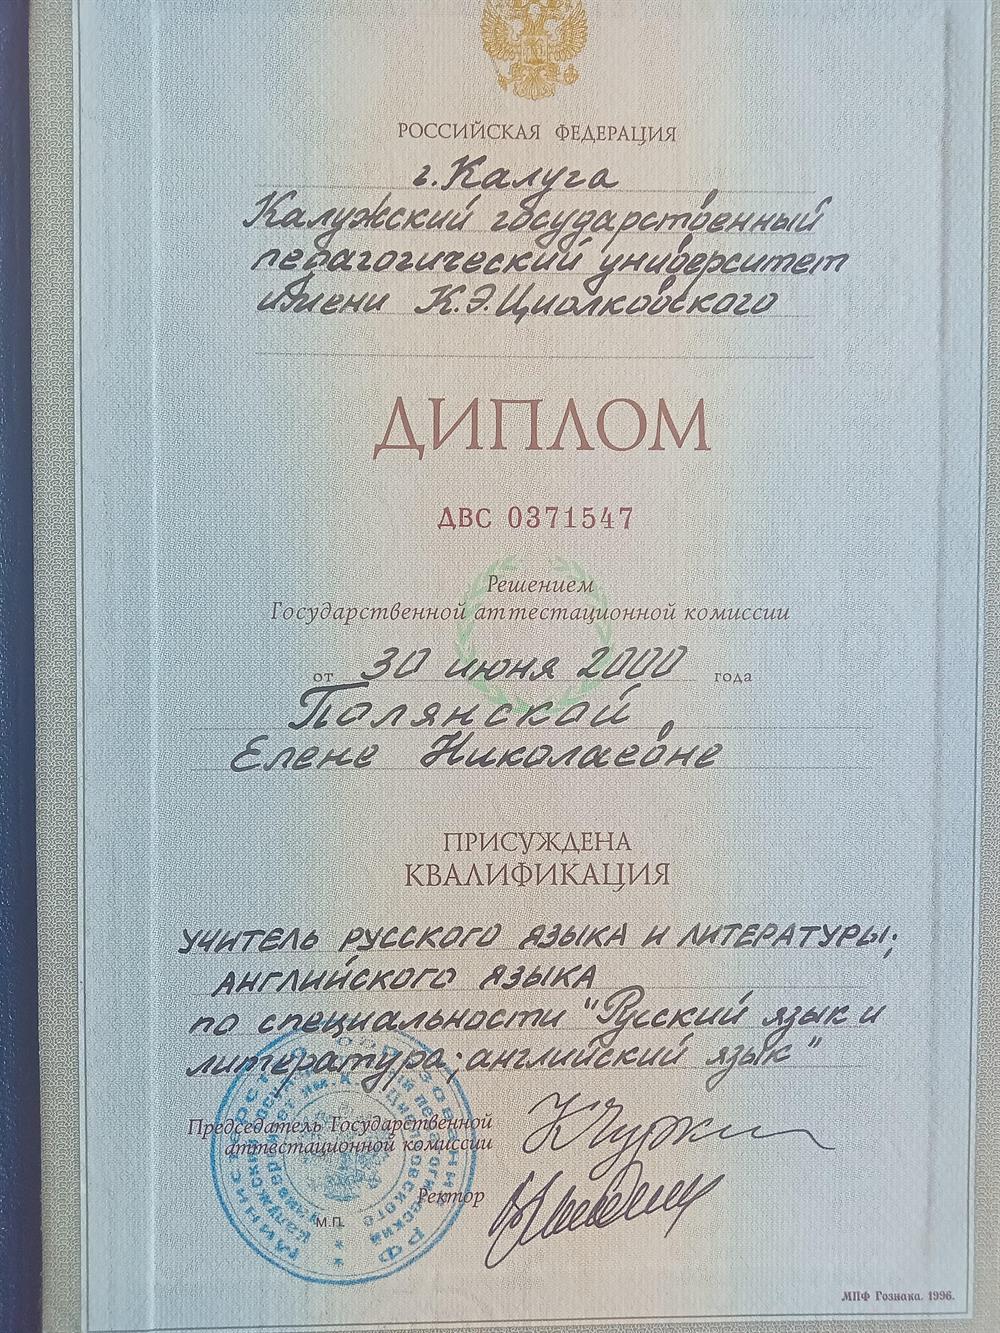 РОССИЙСКАЯ ФЕДЕРАЦИЯ
г. Калуга
Калужский государственный
педагогический университет
имени К.Э. Циолковского
ДИПЛОМ
ДВС 0371547
Решением
Государственной аттестационной комиссии
от 30 июня 2000 года
Полянской
Елене Николаевне
ПРИСУЖДЕНА
КВАЛИФИКАЦИЯ
УЧИТЕЛЬ РУССКОГО ЯЗЫКА И ЛИТЕРАТУРЫ;
АНГЛИЙСКОГО ЯЗЫКА
по специальности "Русский язык и
литература; английский язык"
Председатель Государственной
аттестационной комиссии
Ректор
М.П.
МПФ Гознака. 1996.